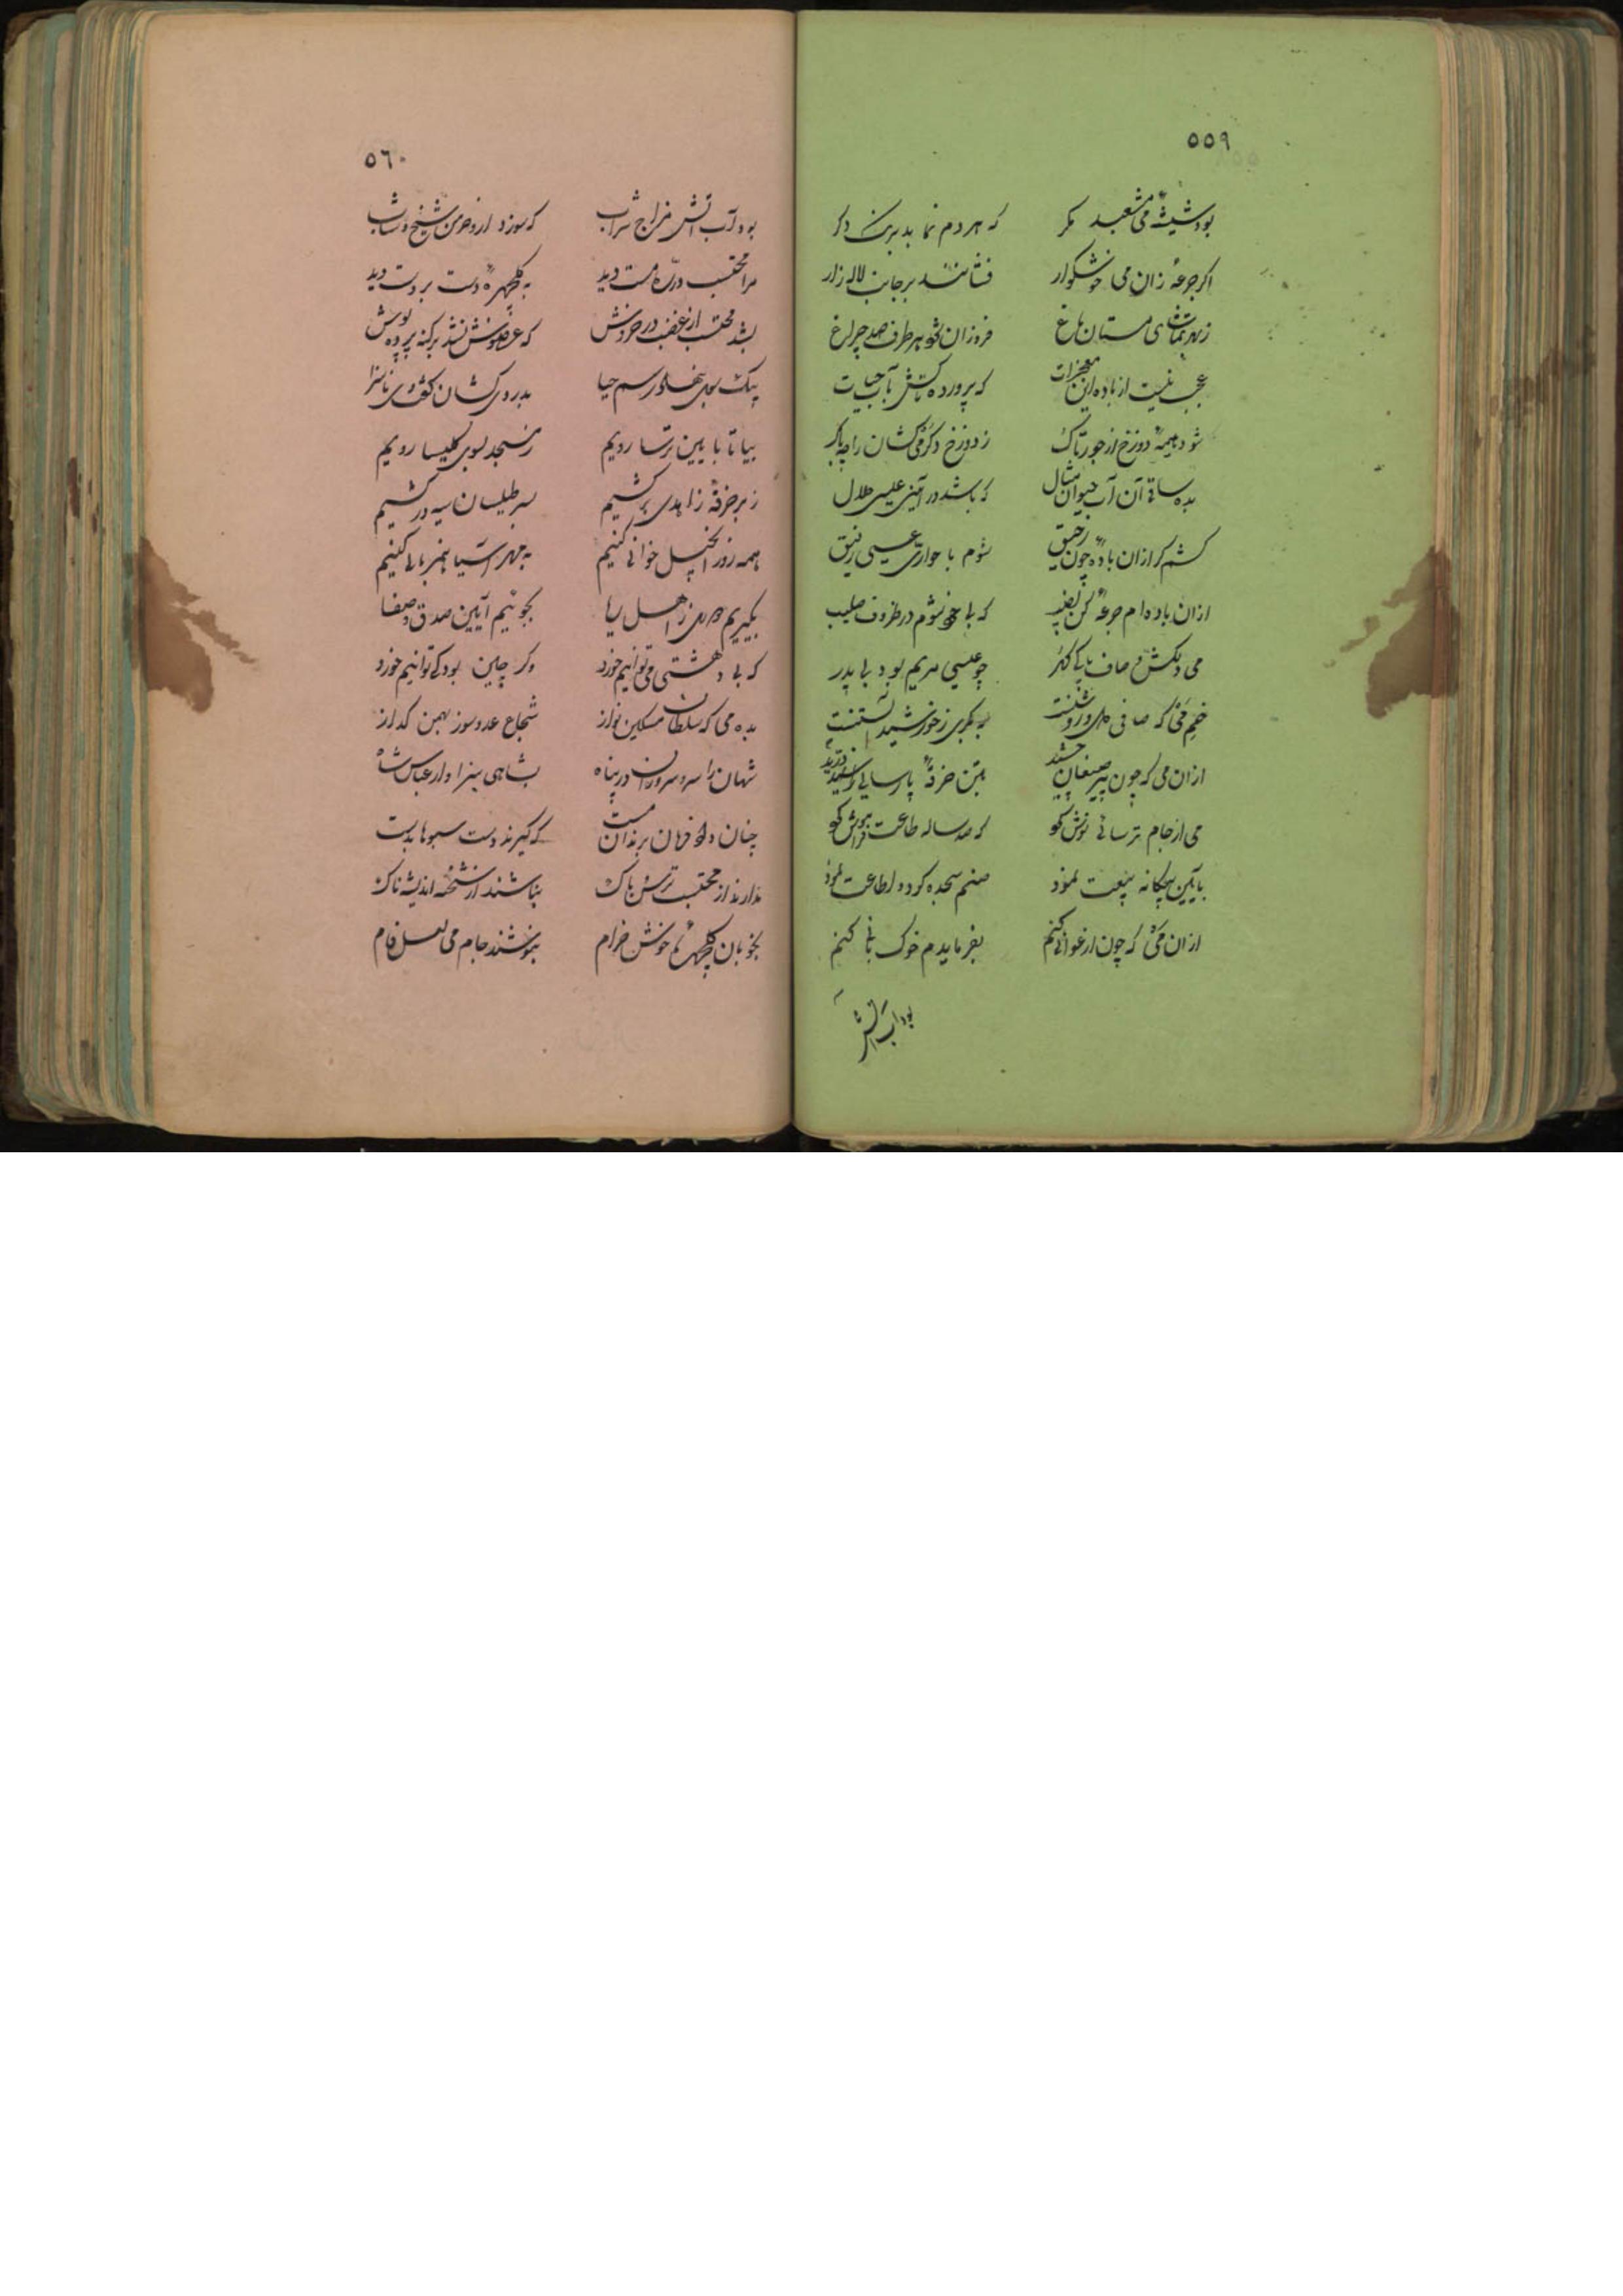 ٥٥٩
بود شیشهٔ می مشعبد مگر که هر دم نماید برنک دکر
اکر جرعهٔ زان می خوشکوار فشانند بر جانب لاله زار
زبهر تماشای مستان باغ فروزان شود هر طرف صد چراغ
عجب نیست از باده این معجزات که پرورده تاکش بآب حیات
شود هیمهٔ دوزخ از چوب تاک ز دوزخ دکر می کشان را چه باک
بده ساقی آن آب حیوان مثال که باشد در آیین عیسی حلال
کشم کر ازان بادهٔ چون رحیق شوم با حواری عیسی رفیق
ازان باده ام جرعهٔ کن نصیب که بیخود شوم در طروف صلیب
می دلکش و صاف پاکی کهر چو عیسی مریم بود بی پدر
خم می که صافی دل و روشنست به بکری ز خورشید آبستنست
ازان می که چون پیر صنعان چشید بتن خرقهٔ پارسایی درید
می از جام ترسائی نوش کرد که صد ساله طاعت فراموش کرد
بآیین بیکانه بیعت نمود صنم سجده کرد و اطاعت نمود
ازان می که چون ارغوانی کنم بفرمایدم خوک بانی کنم
بود آب آتش
٥٦٠
بود آب آتش مزاج شراب که سوزد ازو خرمن شیخ و شاب
مرا محتسب در ره مست دید به کلچهرهٔ دست بر دست دید
بشد محتسب از غضب در خروش که عفوش نشد بر کنه پرده پوش
بیک سو نهاد رسم حیا بدردی کشان کفت ناسزا
بیا تا بآیین ترسا رویم ز مسجد بسوی کلیسا رویم
ز بر خرقهٔ زاهدی بر کشیم بسر طیلسان سیه در کشیم
همه روز انجیل خوانی کنیم
بکیریم دوری ز اهل ریا بجوئیم آیین صدق و صفا
که بی دهشتی می توانیم خورد وکر چنین بود کی توانیم خورد
بده می که سلطان مسکین نواز شجاع عدو سوز بهمن کداز
شهان را سر و سروران را پناه بشاهی سزاوار عباس شاه
چنان داد فرمان برندان مست که کیرند دست سبوها بدست
ندارند از محتسب ترس و باک نباشند از شحنه اندیشه ناک
بخوبان کلچهرهٔ خوش خرام بنوشند جام می لعل فام